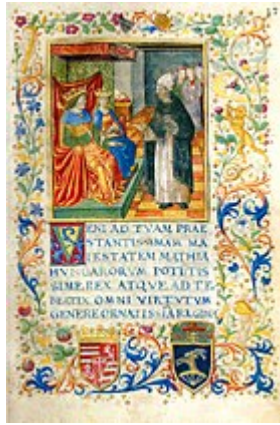 VENI AD TVAM PRAE
STANTISSIMAM MA
IESTATEM MATHIA
HVNGARORVM POTETIS
SIME REX ATQVE AD TE
BEATRIX OMNI VIRTVTVM
GENERE ORNATISSIA RAGONA